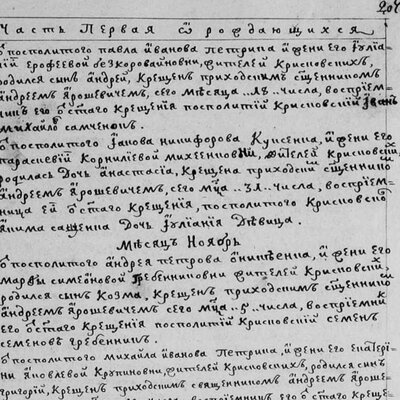 204
Часть Первая ѡ рождающихся
ѹ посполитого павла їванова Петрипа и жени его їулїа
нїй ерофеевой безкоровайновни, жителей Крисповскихъ,
родился синъ андрей, крещенъ приходскимъ священникомъ
андреемъ ярошевичемъ, сего месяца числа, воспрїем
никъ его ѿ стаго крещенїя посполитїй крисповскїй їванъ
михайловъ самченокъ.
ѹ посполитого їакова никифорова и жени его
параскевїй Корнилїевой михеенковни, жителей крисповскихъ
родилась дочь анастасїа, крещена приходскїй священнико
андреемъ ярошевичемъ, сего мца числа, воспрїем
ница ей ѿ стаго крещенїя, посполитого крисповско
дочь їулїанїя девица.
Месяцъ Ноябрь
ѹ посполитого андрея петрова и жени его
марѳы симеоновой Гребенниковни жителей Крисповскихъ
родился синъ козма, крещенъ приходскимъ священнико
андреемъ ярошевичемъ сего мца числа, воспрїемник
его ѿ стаго крещенїя посполитїй крисповскїй семенъ
семеновъ гребенникъ.
ѹ посполитого михайла їванова Петрипа, и жени его екатери
ни яковлевой Крупиновни, жителей Крисповскихъ, родился синъ
григорїй, крещенъ приходскимъ священникомъ андреемъ ярошев
ичемъ, воспрїемникъ его ѿ стаго креще